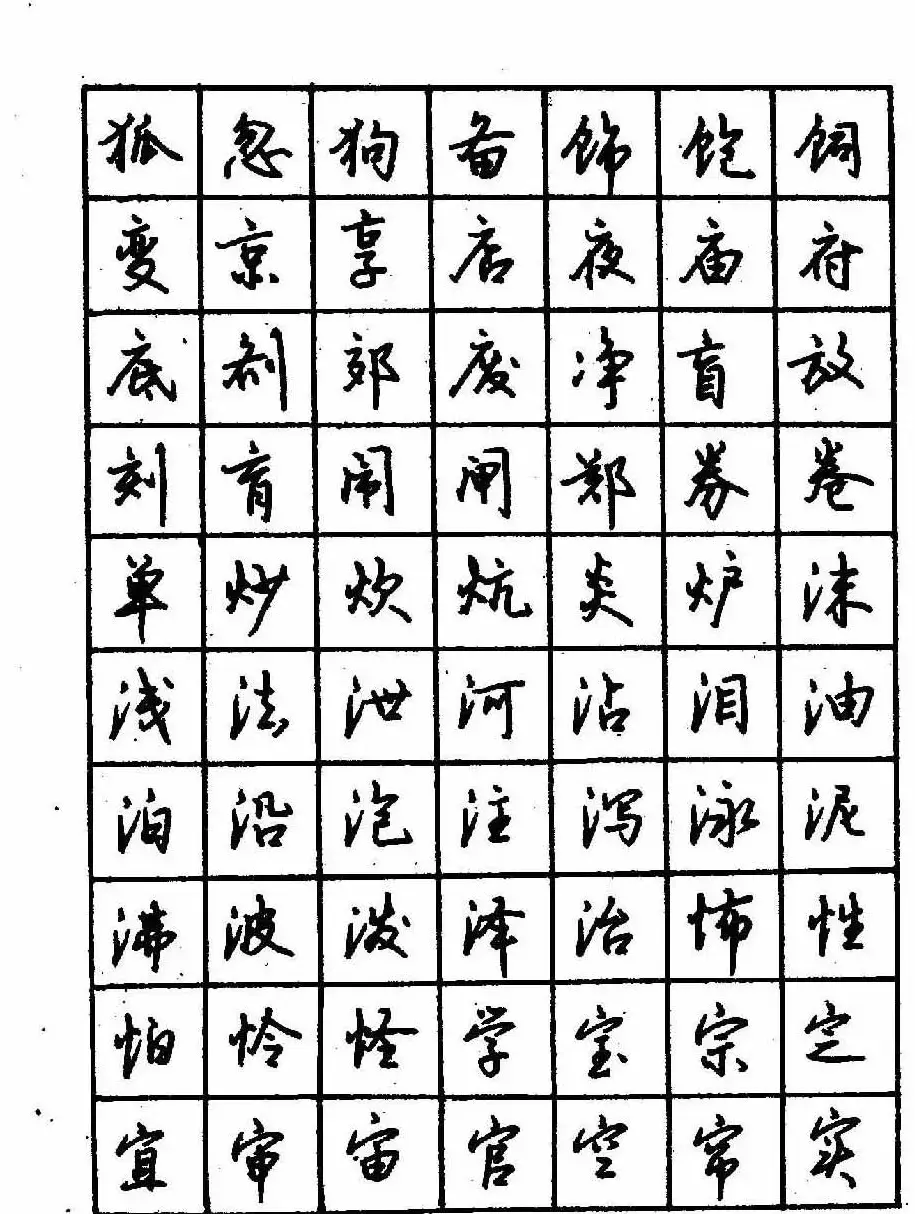 狐忽狗备饰饱饲
变京享店夜庙府
底剂郊废净盲放
刻育闹闸郑券卷
单炒炊炕炎炉沫
浅法泄河沾泪油
泊沿泡注泻泳泥
沸波泼泽治怖性
怕怜怪学宝宗定
宜审宙官空帘实